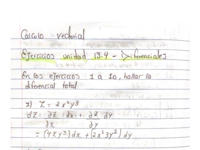 Calculo vectorial
Ejercicios unidad 13.4 - Diferenciales
En los ejercicios 1 a 10, hallar la
diferencial total
1) Z = 2x²y³
dz = ∂z/∂x dx + ∂z/∂y dy
= (4xy³)dx + (2x²3y²)dy